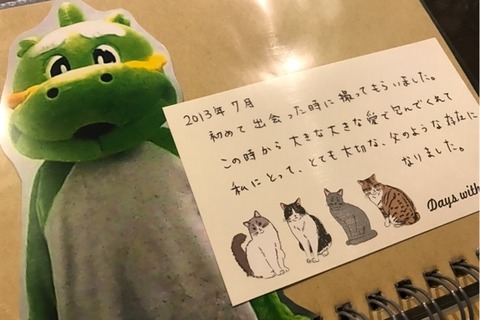 2013年7月
初めて出会った時に撮ってもらいました。
この時から大きな大きな愛で包んでくれて
私にとって、とても大切な、父のような存在に
なりました。
Days with